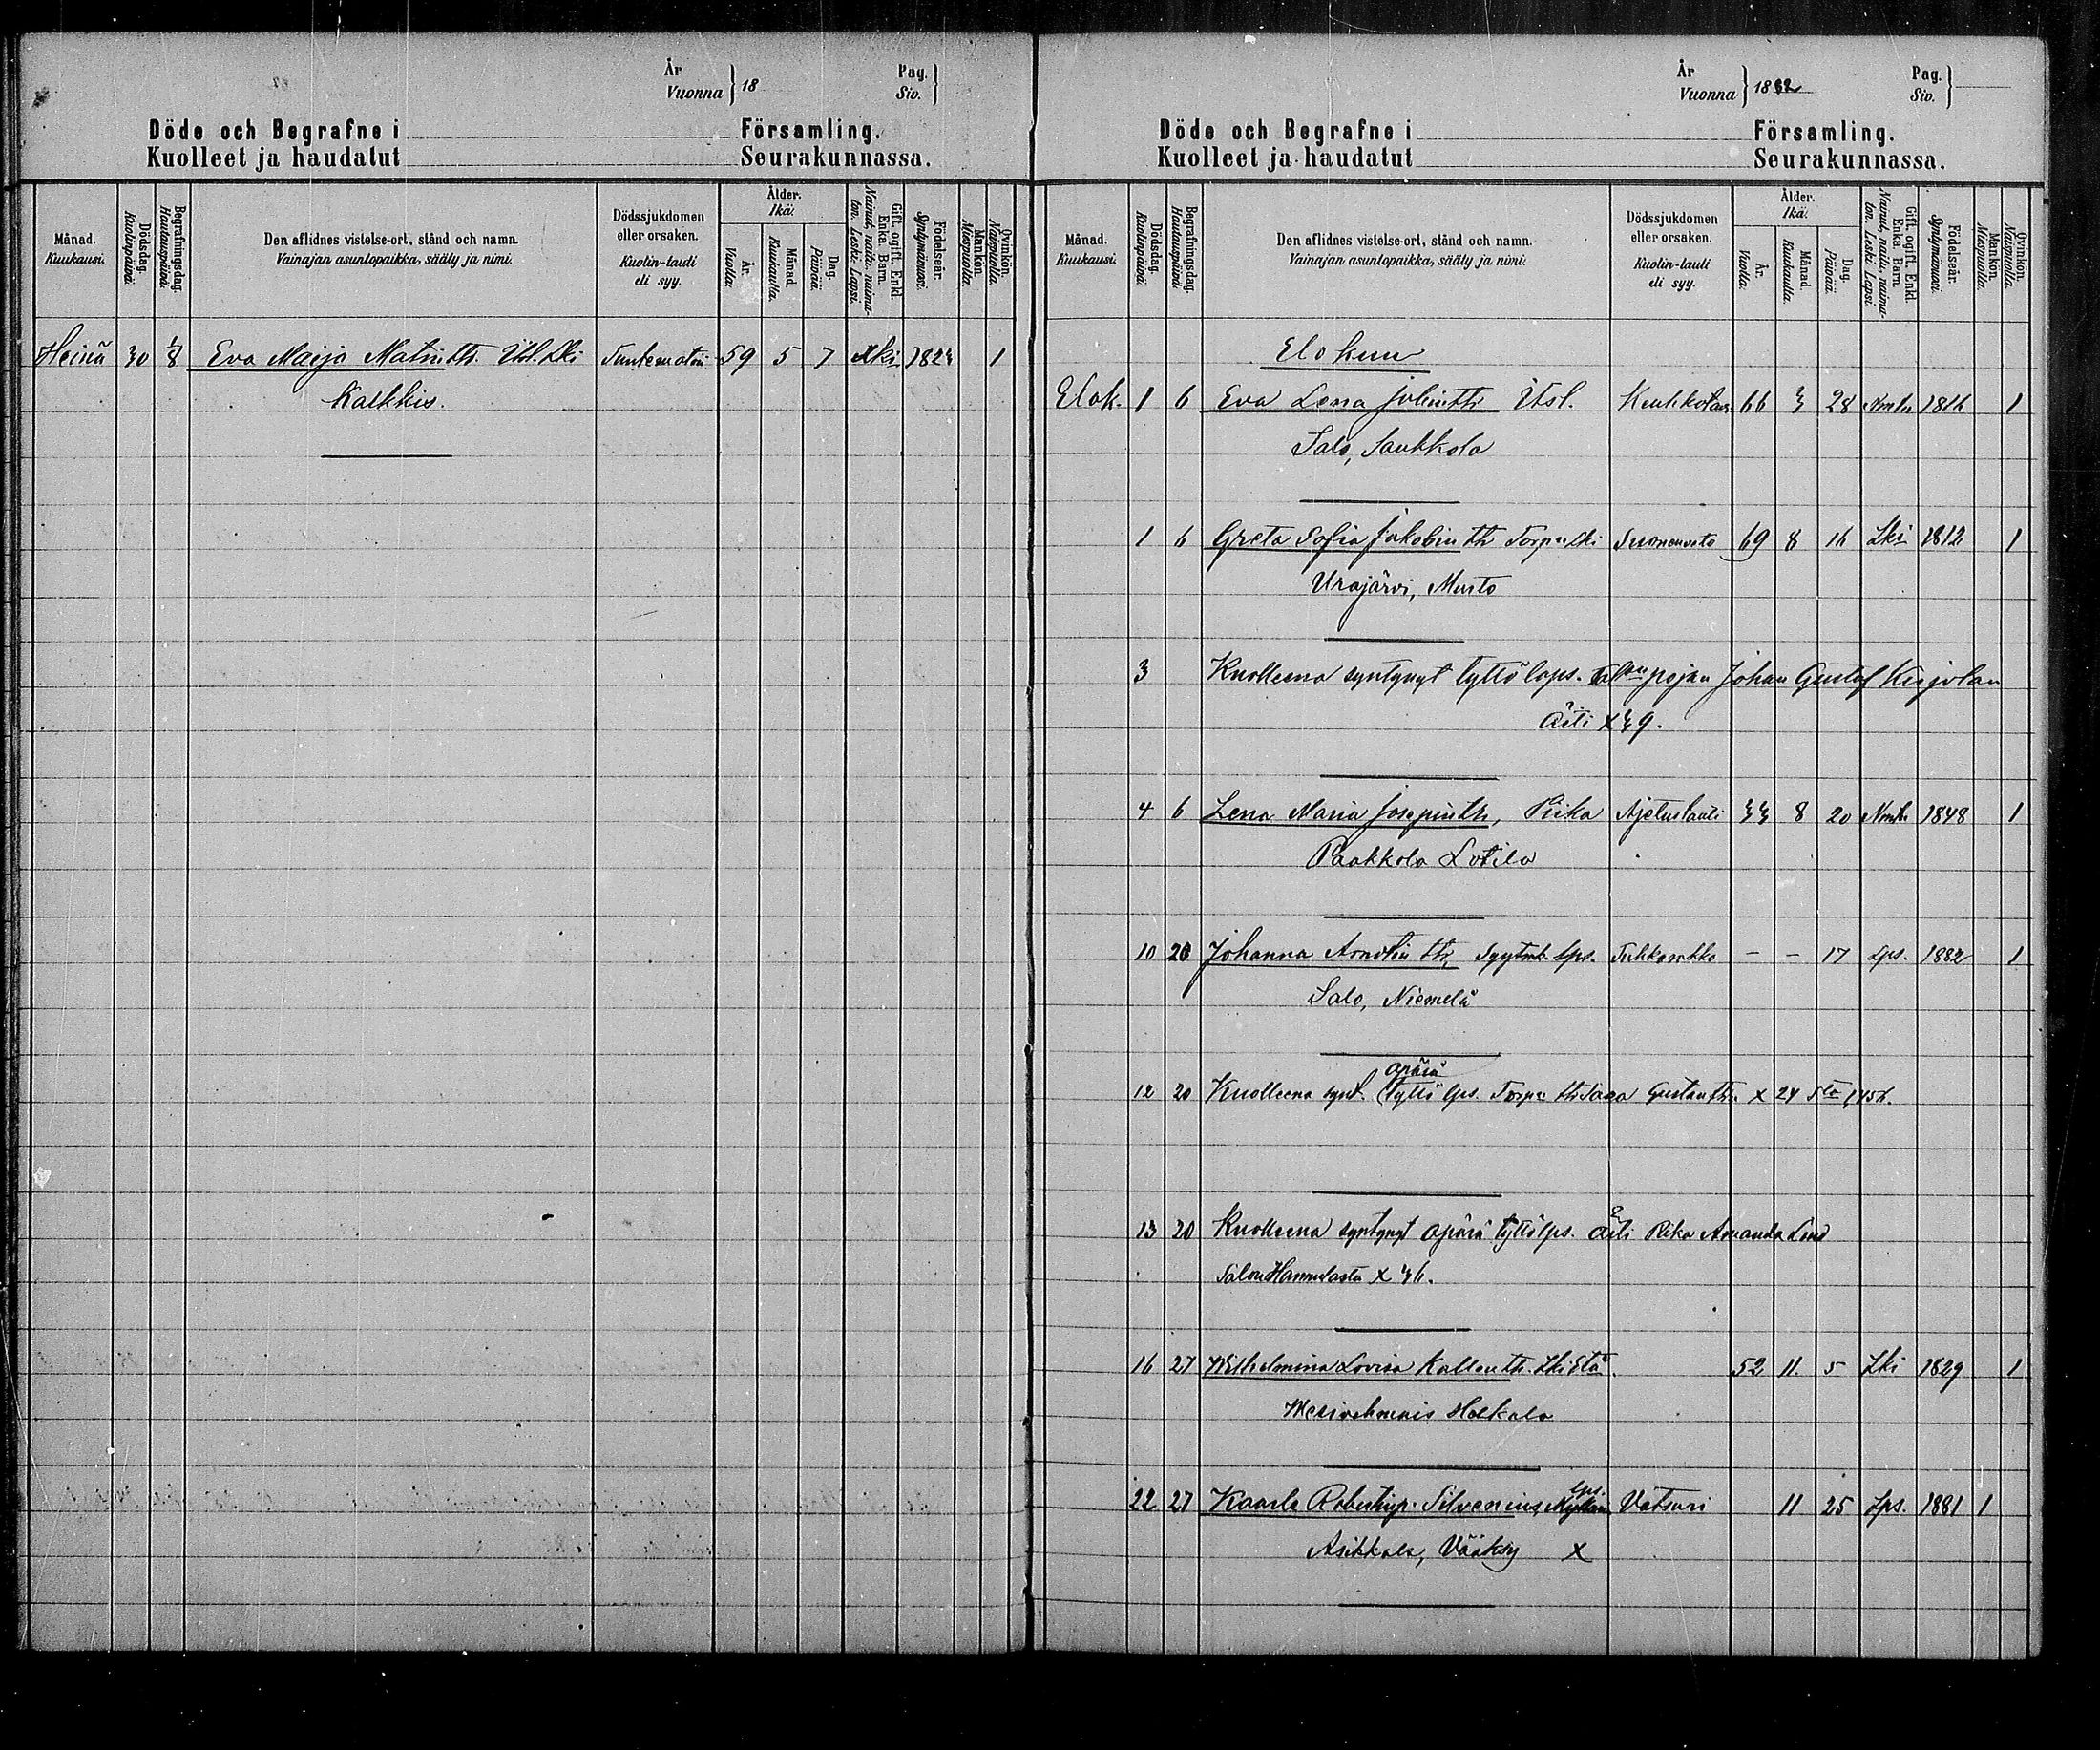 År
Vuonna } 18
Pag.
Siv. }
Döde och Begrafne i Församling.
Kuolleet ja haudatut Seurakunnassa.
Månad. Kuukausi.
Dödsdag. Kuolinpäivä.
Begrafningsdag. Hautauspäivä.
Den aflidnes vistelse-ort, stånd och namn.
Vainajan asuntopaikka, sääty ja nimi.
Dödssjukdomen eller orsaken.
Kuolin-tauti eli syy.
Ålder. Ikä.
År. Vuotta.
Månad. Kuukautta.
Dag. Päivää.
Gift, ogift. Enkl. Enka. Barn. Nainut, naitu, naimaton. Leski. Lapsi.
Födelseår. Syntymävuosi.
Mankön. Miespuolia.
Qvinkön. Naispuolia.
Heinä 30 1/8 Eva Maija Matintr. Itsl. Lki Tuntematoin 59 5 7 Lki 1823 1
Kalkkis.
År
Vuonna } 1882
Pag.
Siv. }
Döde och Begrafne i Församling.
Kuolleet ja haudatut Seurakunnassa.
Månad. Kuukausi.
Dödsdag. Kuolinpäivä.
Begrafningsdag. Hautauspäivä.
Den aflidnes vistelse-ort, stånd och namn.
Vainajan asuntopaikka, sääty ja nimi.
Dödssjukdomen eller orsaken.
Kuolin-tauti eli syy.
Ålder. Ikä.
År. Vuotta.
Månad. Kuukautta.
Dag. Päivää.
Gift, ogift. Enkl. Enka. Barn. Nainut, naitu, naimaton. Leski. Lapsi.
Födelseår. Syntymävuosi.
Mankön. Miespuolia.
Qvinkön. Naispuolia.
Elokuu
Elok. 1 6 Eva Lena Juhintr Itsl. Keuhkotau 66 3 28 1816 1
Salo, Saukkola
1 6 Greta Sofia Jakobintr Torp: Lki Suonenveto 69 8 16 Lki 1812 1
Urajärvi, Musto
3 Kuolleena syntynyt tyttö laps. pojan Johan Gustaf Kirjolan
äiti x 39.
4 6 Lena Maria Josepintr, Piika Ajetustauti 33 8 20 Nmtn 1848 1
Paakkola Lotila
10 20 Johanna tr, lps. Tuhkarokko - - 17 Lps. 1882 1
Salo, Niemelä
äpärä
12 20 Kuolleena synt. tyttö lps. Torp: tr Saga Gustavtr: x 24
13 20 Kuolleena syntynyt äpärä tyttö lps. äiti Piika Amanda Lind
Salon Hannulasta x 36.
16 27 Wilhelmina Lovisa Kallentr. Lki Etä 52 11. 5 Lki 1829 1
22 27 Kaarle Robertinp. Silvenius, Myllärin lps. Vatsuri 11 25 Lps. 1881 1
Asikkala, Vääksy x